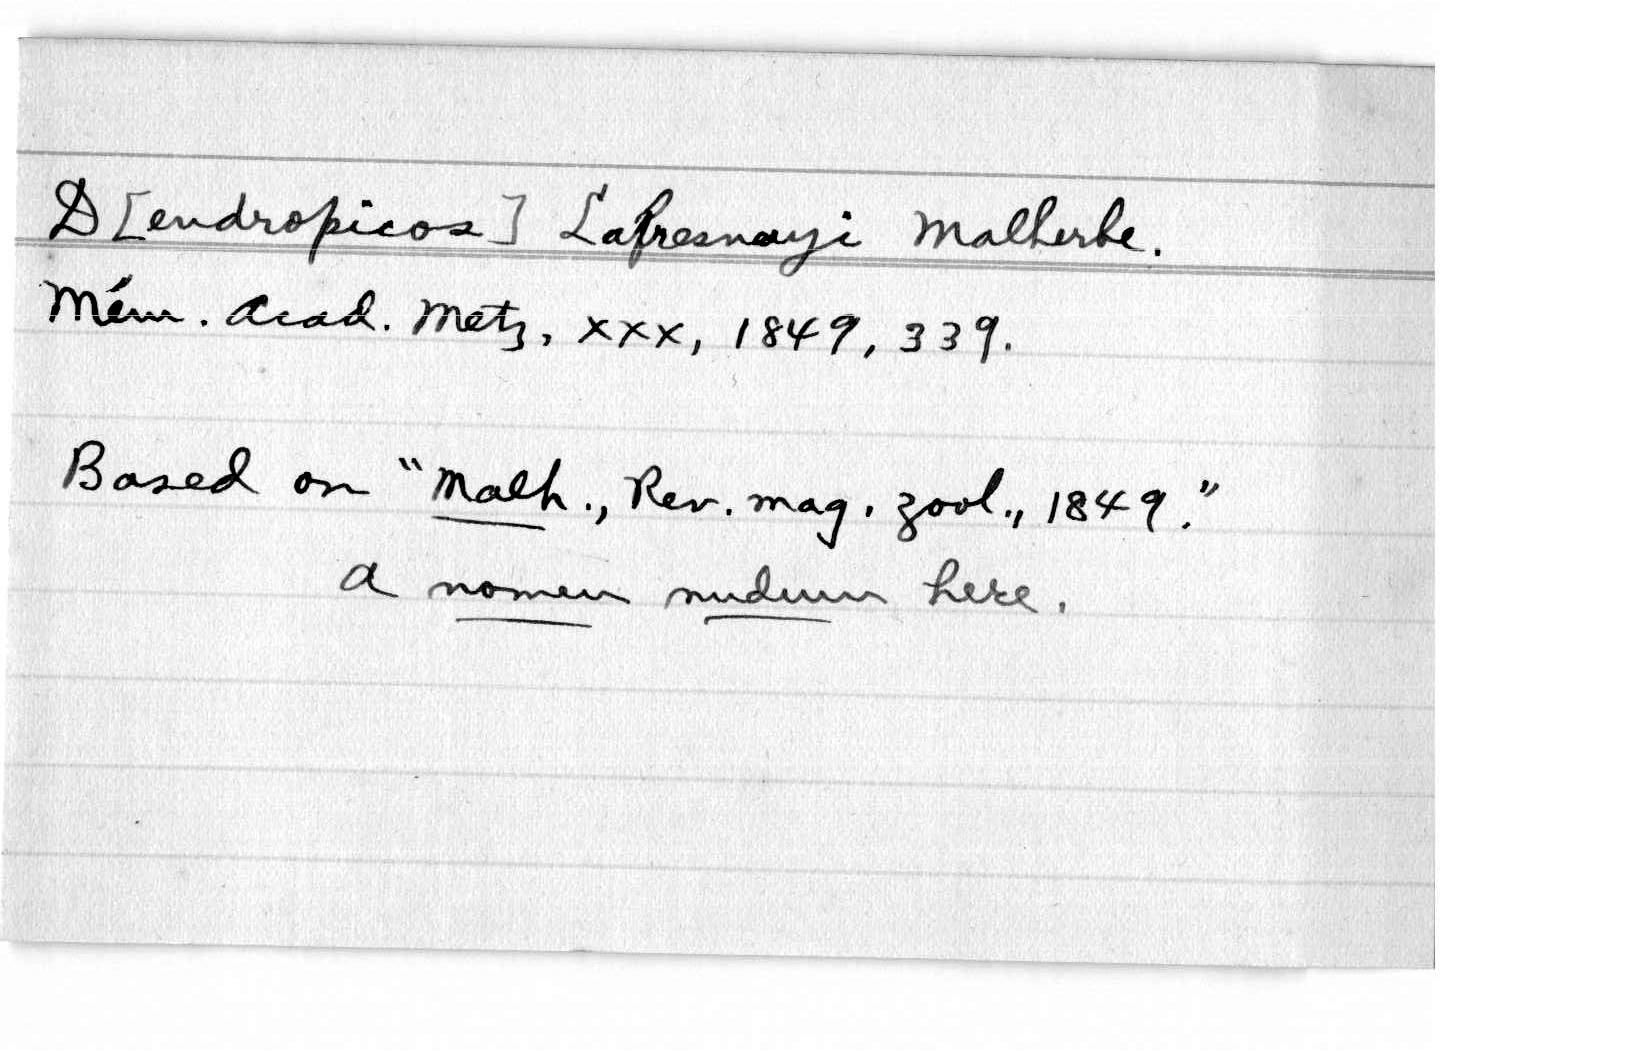 D[endropicos] Lafresnayi Malherbe.
Mém. Acad. Metz, xxx, 1849, 339.
Based on "Malh., Rev. mag. zool., 1849."
a nomen nudum here.